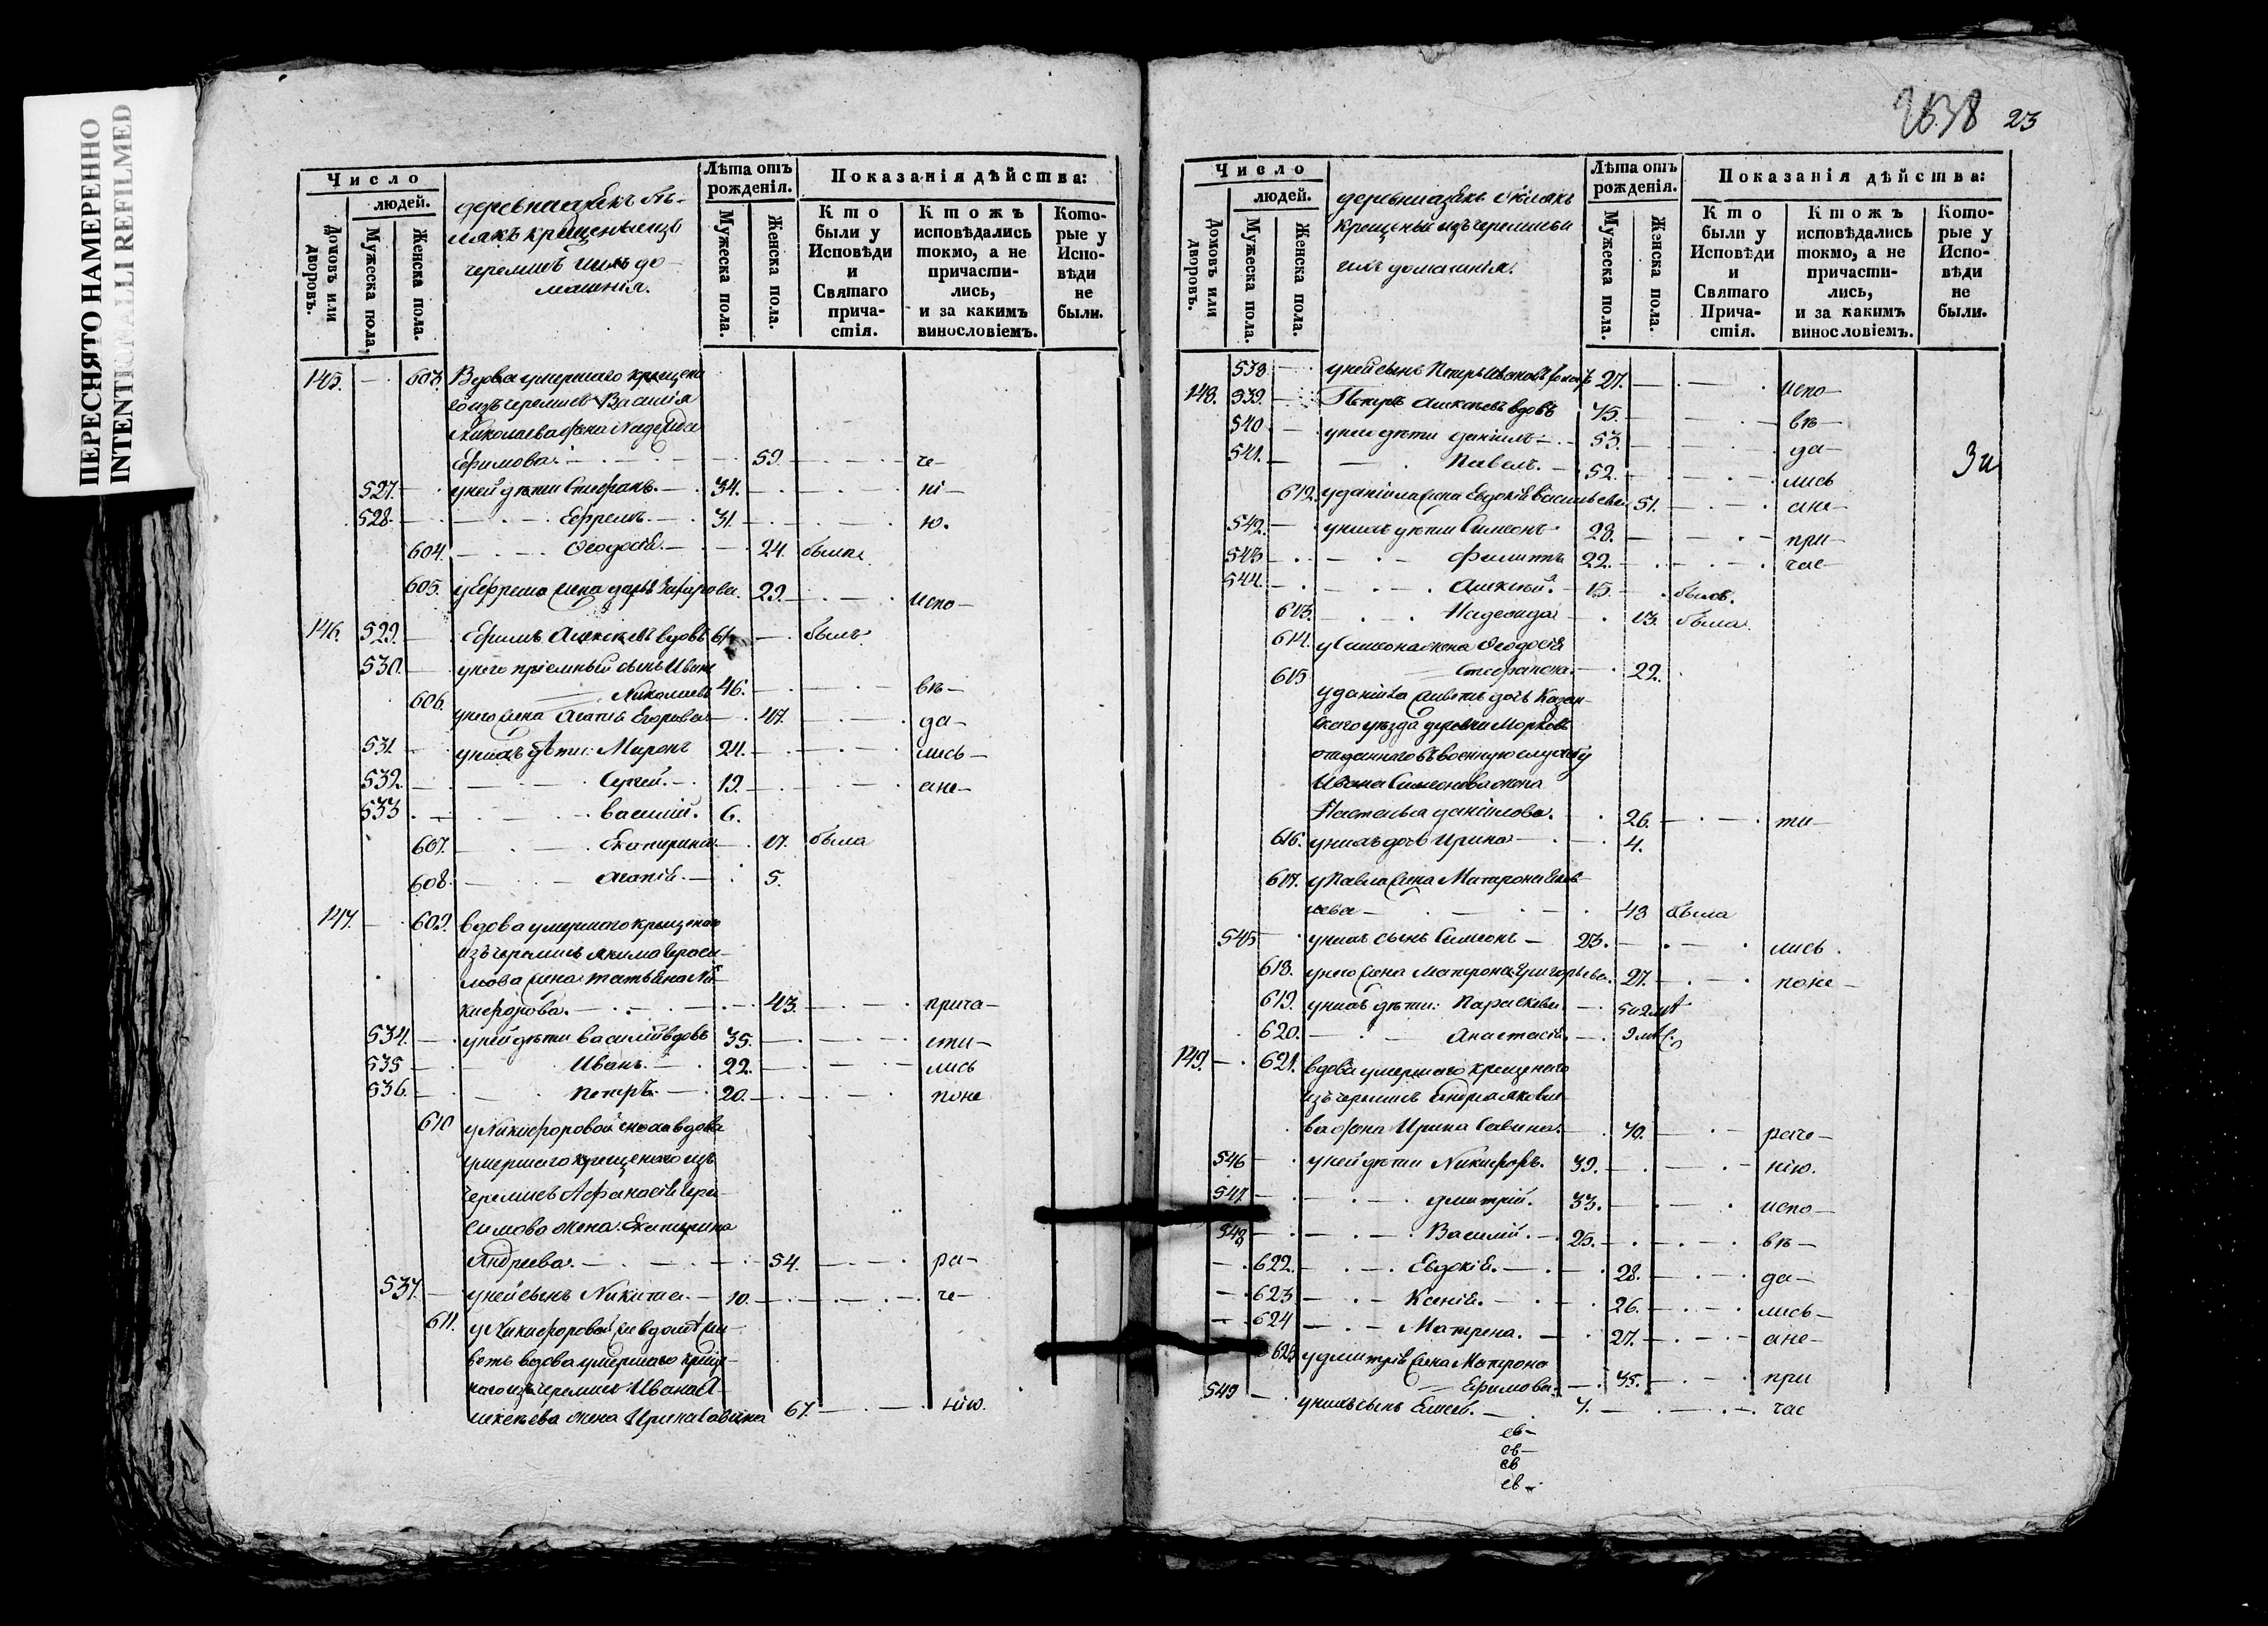 ПЕРЕСНЯТО НАМЕРЕННО
INTENTIONALLI REFILMED
Число
людей.
Домовъ или дворовъ.
Мужеска пола,
Женска пола.
Лѣта отъ рожденія.
Мужеска пола.
Женска пола.
Показанія дѣйства:
Кто были у Исповѣди и Святаго причастія.
Ктожъ исповѣдались токмо, а не причастились, и за какимъ винословіемъ.
Которые у Исповѣди не были.
черемисъ и ихъ до-
машнія.
145. 603. Вдова умершаго крещена
го изъ черемисъ Василія
Николаева жена Надежда
Ефимова. 59. че-
527. у ней дѣти Стефанъ. 34. ні-
528. Ефремъ. 31. ю.
604. Ѳеодосія. 24. была
605. у Ефрема жена Дарья 29. испо-
146. 529. Ефимъ Алексѣевъ вдовъ 64 былъ
530. у него пріемный сынъ Иванъ
Николаевъ 46. вѣ-
606. у него жена Агапія Егорова 47. да-
531. у нихъ дѣти: Миронъ 24. лись-
532. Сергей. 19. ане-
533 Василій. 6.
607. Екатерина 17. была
608. Агапія. 5.
147. 609. вдова умершаго крещенаго
изъ черемисъ Акима Гераси-
мова жена Татьяна Ни-
кифорова. 43. прича-
534. у ней дѣти Василій вдовъ 35. сти-
535 Иванъ. 22. лись
536. Петръ. 20. поне
610 у Никифоровой сноха вдова
умершаго крещенаго изъ
черемисъ Афанасія Гера-
симова жена Екатерина
Андреева. 54. ра-
537. у ней сынъ Никита. 10. че-
611. у Никифоровой жи-
ветъ вдова умершаго креще-
наго изъ черемисъ Ивана А-
лексѣева жена Ирина Савина 67. нію.
2638 23
Число
людей.
Домовъ или дворовъ.
Мужеска пола.
Женска пола.
крещеныя изъ черемисъ и
ихъ домашнія.
Лѣта отъ рожденія.
Мужеска пола.
Женска пола.
Показанія дѣйства:
Кто были у Исповѣди и Святаго Причастія.
Ктожъ исповѣдались токмо, а не причастились, и за какимъ винословіемъ.
Которые у Исповѣди не были.
538 у ней сынъ Петръ Ивановъ 27. испо-
148. 539. Петръ Алексѣевъ вдовъ 75. вѣ-
540 у него дѣти Даніилъ 53. да-
541. Павелъ. 52. лись
612. у Даніила жена Евдокія Васильева 51. ане-
542. у нихъ дѣти Симеонъ 28. при-
543 Филиппъ 22. час-
544. Алексѣй. 15. былъ.
613. Надежда 13. была.
614. у Симеона жена Ѳеодосія
Стефанова. 22.
615 у Даніила живетъ дочь Казан-
скаго уѣзда деревни Морковъ
отданнаго въ военную службу
Ивана Симеонова жена
Настасья Даніилова. 26. ти-
616. у нихъ дочь Ирина 4.
617. у Павла жена Матрона Яков-
лева 48 была
545 у нихъ сынъ Симеонъ 23. лись.
618. у него жена Матрона Григорьева. 27. поне-
619. у нихъ дѣти: Параскева.
620. Анастасія.
149. 621. вдова умершаго крещенаго
изъ черемисъ Андрея Яковле-
ва жена Ирина Савина. 70. раче-
546 у ней дѣти Никифоръ. 39. нію.
547. Дмитрій. 33. испо-
548 Василій. 25. вѣ-
622. Евдокія. 28. да-
623 Ксенія. 26. лись-
624 Матрена. 27. ане-
625 у Дмитрія жена Матрона
Ефимова. 35. при
549 у нихъ сынъ Елисей. 7. час